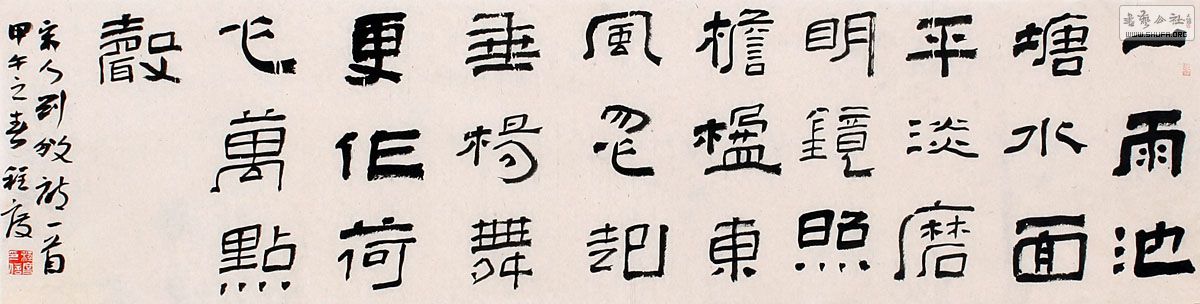 一雨池
塘水面
平淡磨
明鏡照
檐楹東
風忽起
垂楊舞
更作荷
心萬點
聲
宋人劉攽詩一首
甲午之春程度
書藝公社
WWW.SHUFA.ORG